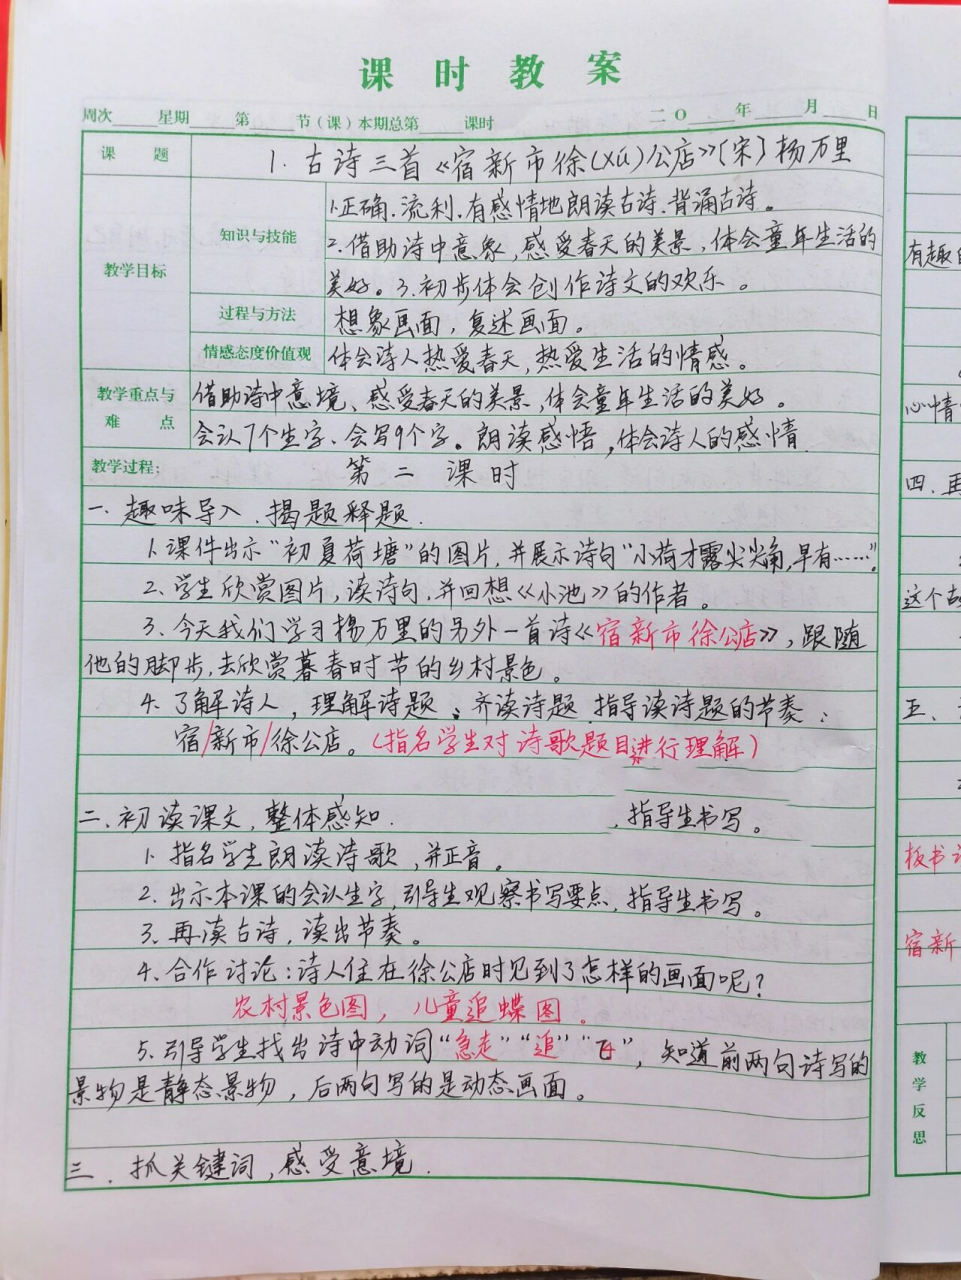 课时教案
周次 星期 第 节（课）本期总第 课时 二〇 年 月 日
课题 1.古诗三首《宿新市徐(xú)公店》〔宋〕杨万里
教学目标
知识与技能
1.正确.流利.有感情地朗读古诗.背诵古诗。
2.借助诗中意象，感受春天的美景，体会童年生活的
美好。3.初步体会创作诗文的欢乐。
过程与方法 想象画面，复述画面。
情感态度价值观 体会诗人热爱春天，热爱生活的情感。
教学重点与难点
借助诗中意境、感受春天的美景，体会童年生活的美好。
会认7个生字、会写9个字。朗读感悟，体会诗人的感情
教学过程: 第二课时
一、趣味导入.揭题释题.
1.课件出示“初夏荷塘”的图片，并展示诗句“小荷才露尖尖角，早有……”.
2.学生欣赏图片，读诗句.并回想《小池》的作者。
3.今天我们学习杨万里的另外一首诗《宿新市徐公店》，跟随
他的脚步，去欣赏暮春时节的乡村景色。
4.了解诗人，理解诗题；齐读诗题.指导读诗题的节奏：
宿/新市/徐公店。(指名学生对诗歌题目进行理解)
二.初读课文，整体感知. ，指导生书写。
1.指名学生朗读诗歌，并正音。
2.出示本课的会认生字，引导生观察书写要点，指导生书写。
3.再读古诗，读出节奏。
4.合作讨论：诗人住在徐公店时见到了怎样的画面呢？
农村景色图，儿童追蝶图。
5.引导学生找出诗中动词“急走”“追”“飞”，知道前两句诗写的
景物是静态景物，后两句写的是动态画面。
三.抓关键词，感受意境.
有趣
心情
四.再
这个
五、
板书
宿新
教学反思